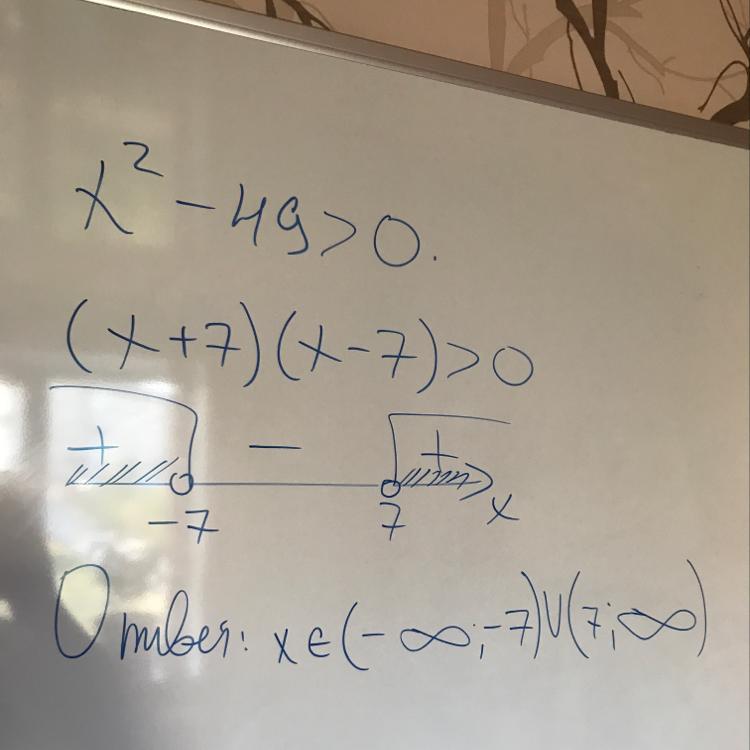 x² - 49 > 0.
(x + 7)(x - 7) > 0
+ — +
-7 7 x
Ответ: x ∈ (-∞; -7) ∪ (7; ∞)